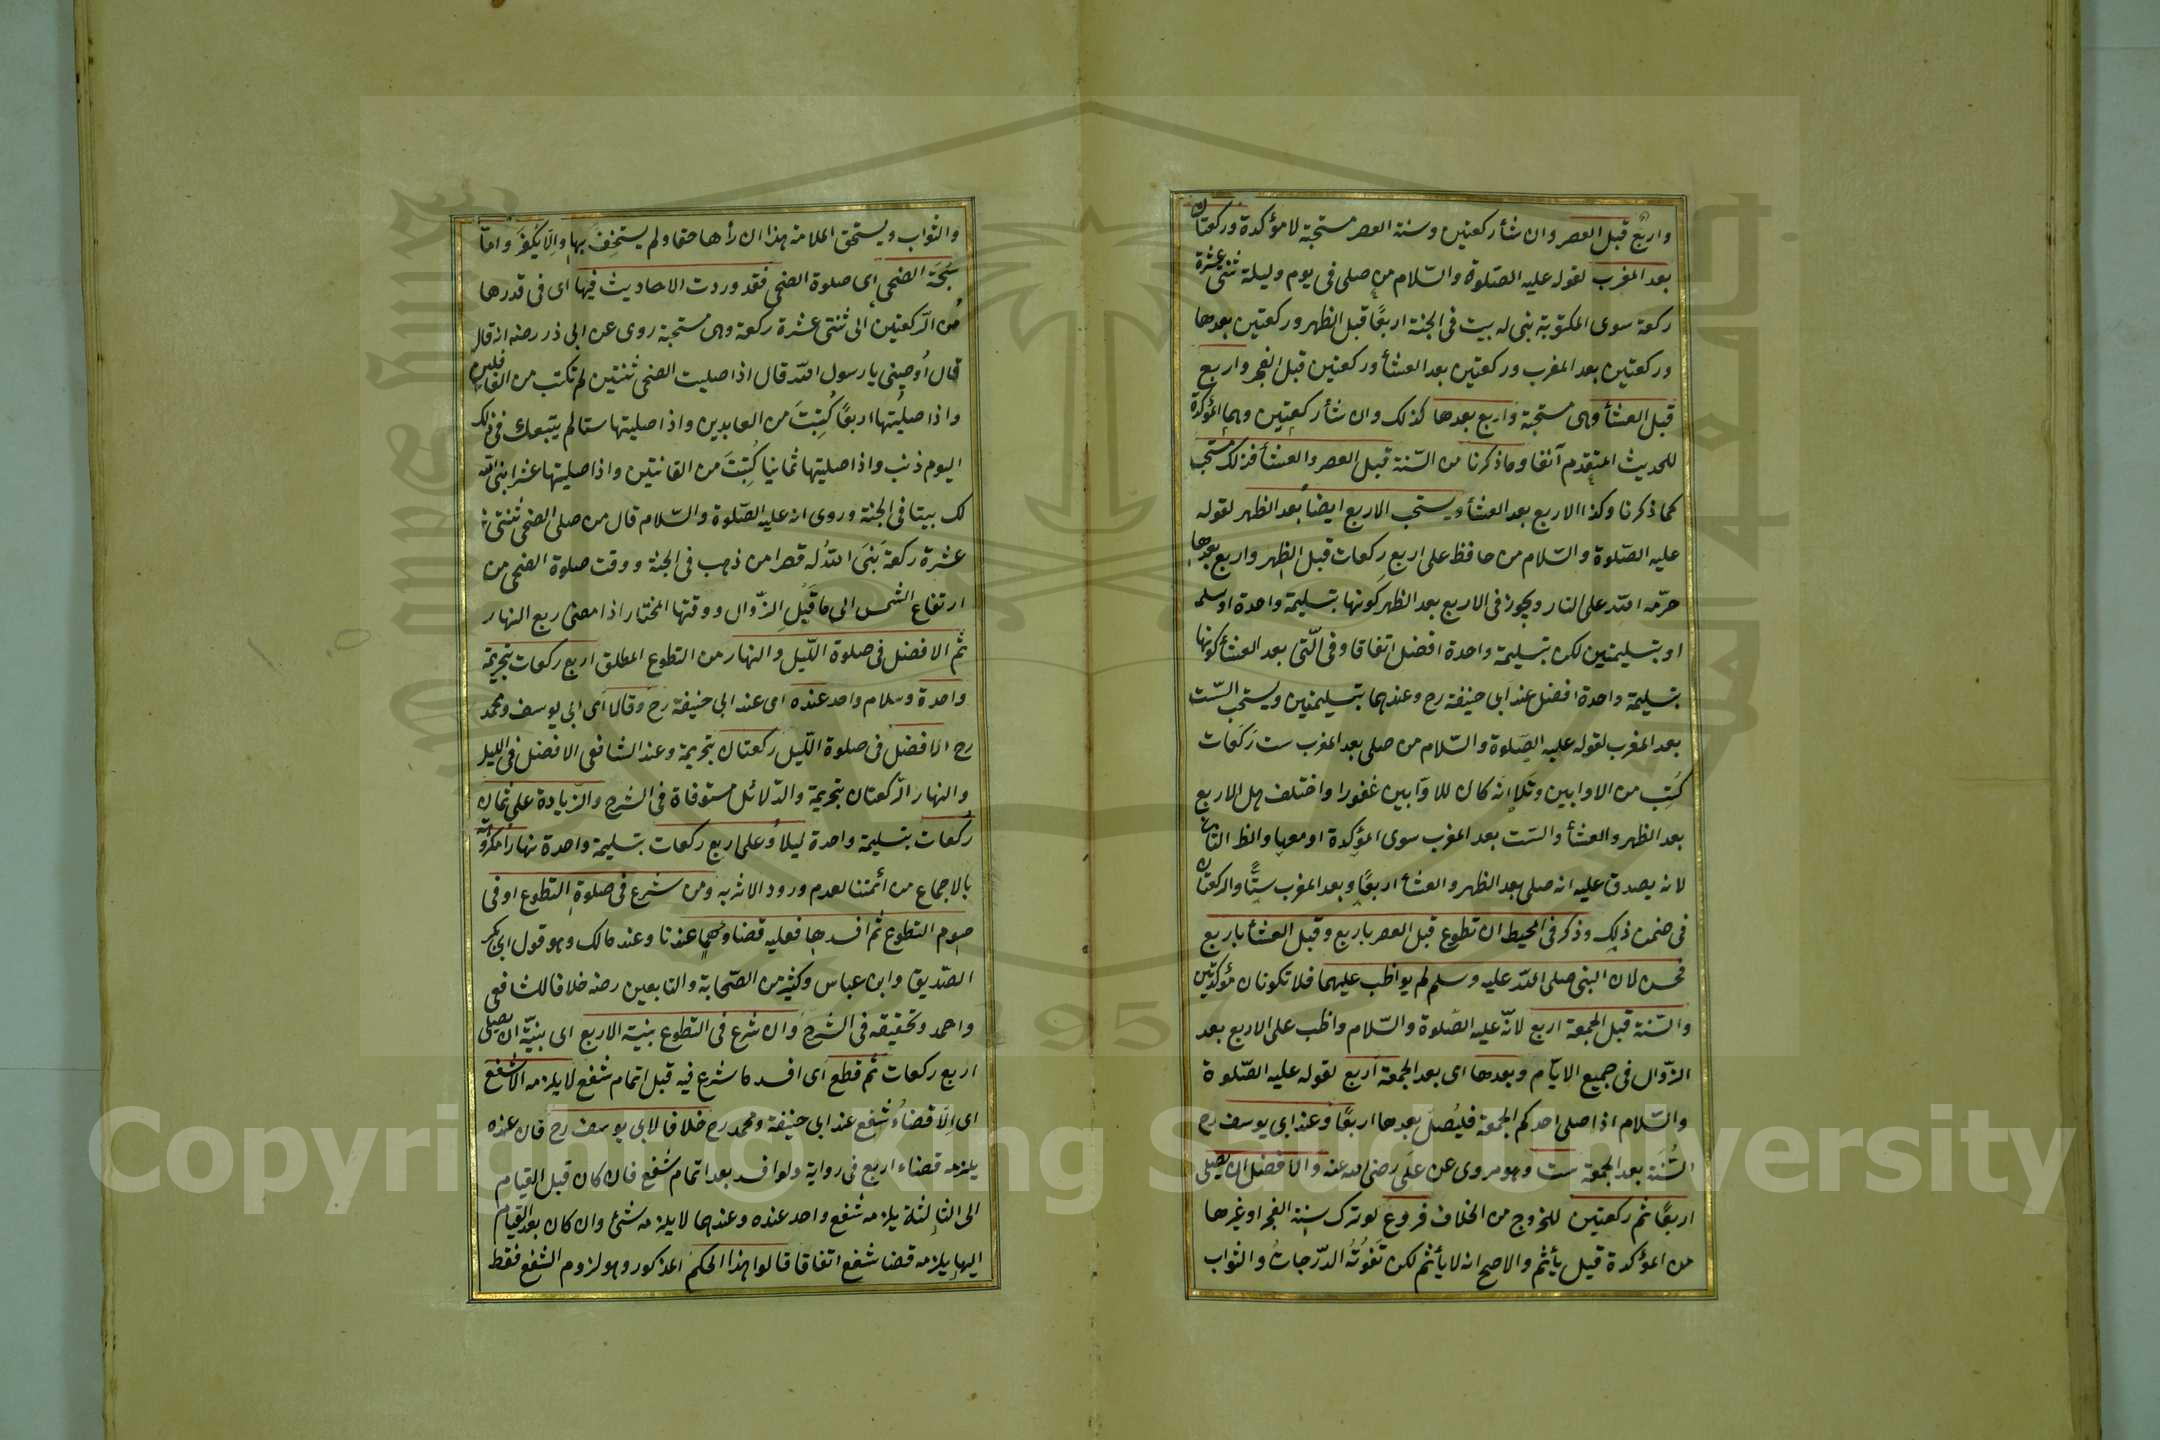 واربع قبل العصر وان شأ ركعتين وسنة العصر مستحبة لا مؤكدة وركعتان
بعد المغرب لقوله عليه الصّلوة والسّلام من صلى فى يوم وليلة ثنتى عشرة
ركعة سوى المكتوبة بنى له بيت فى الجنة اربعًا قبل الظهر وركعتين بعدها
وركعتين بعد المغرب وركعتين بعد العشأ وركعتين قبل الفجر واربع
قبل العشأ وهى مستحبة واربع بعدها كذلك وان شأ ركعتين وهما المؤكدة
للحديث المتقدم آنفا وما ذكرنا من السّنة قبل العصر والعشأ فذلك مستحب
كما ذكرنا وكذا الاربع بعد العشأ ويستحب الاربع ايضاً بعد الظهر لقوله
عليه الصّلوة والسّلام من حافظ على اربع ركعات قبل الظهر واربع بعدها
حرّمه اللّه على النار ويجوز فى الاربع بعد الظهر كونها بتسليمة واحدة
او بتسليمتين لكن بتسليمة واحدة افضل اتفاقا وفى الّتى بعد العشأ كونها
بتسليمة واحدة افضل عند ابى حنيفة رح وعندهما بتسليمتين ويستحب السّت
بعد المغرب لقوله عليه الصّلوة والسّلام من صلى بعد المغرب ست ركعات
كُتِب من الاوابين وتلا انّه كان للاوّابين غفورا واختلف هل الاربع
بعد الظهر والعشأ والست بعد المغرب سوى المؤكدة او معها والظ الثانى
لانه يصدق عليه انه صلى بعد الظهر والعشأ اربعًا وبعد المغرب ستًّا والركعتان
فى ضمن ذلك وذكر فى المحيط ان تطوع قبل العصر باربع وقبل العشأ باربع
فحسن لان النبى صلى اللّه عليه وسلم لم يواظب عليهما فلا تكونان مؤكدتين
والسّنة قبل الجمعة اربع لانّه عليه الصّلوة والسّلام واظب على الاربع بعد
الزّوال فى جميع الايّام وبعدها اى بعد الجمعة اربع لقوله عليه الصّلوة
والسّلام اذا صلى احدكم الجمعة فليُصلّ بعدها اربعًا وعند ابى يوسف رح
السُّنّة بعد الجمعة ست وهو مروى عن على رضى الله عنه والافضل ان يصلى
اربعًا ثم ركعتين للخروج من الخلاف فروع لو ترك سنة الفجر او غيرها
من المؤكدة قيل يأثم والاصح انه لا يأثم لكن تفوتُه الدّرجاتُ والثواب
والثواب ويستحق الملامة هذا ان رأها حقا ولم يستخِفّ بها والّا يكفر وامّا
سُبحَة الضحى اى صلوة الضحى فقد وردت الاحاديث فيها اى فى قدرها
من الرّكعتين الى ثنتى عشرة ركعة وهى مستحبة روى عن ابى ذر رضه انه قال
قال اُوصِنى يا رسول اللّه قال اذا صليت الضحى ثنتين لم تكتب من الغافلين
واذا صليتها اربعًا كُتِبتَ من العابدين واذا صليتها ستا لم يتبعك فى ذلك
اليوم ذنب واذا صليتها ثمانيا كُتِبتَ من القانتين واذا صليتها عشرا بنى اللّه
لك بيتا فى الجنة وروى انه عليه الصّلوة والسّلام قال من صلى الضحى ثنتى
عشرة ركعة بَنَى اللّه له قصرا من ذهب فى الجنة ووقت صلوة الضحى من
ارتفاع الشمس الى ما قُبَيلِ الزّوال ووقتها المختار اذا مضى ربع النهار
ثم الافضل فى صلوة اللّيل والنهار من التطوع المطلق اربع ركعات بتحريمة
واحدة وسلام واحد عنده اى عند ابى حنيفة رح وقالا اى ابى يوسف ومحمد
رح الافضل فى صلوة اللّيل ركعتان بتحريمة وعند الشافعى الافضل فى الليل
والنهار الرّكعتان بتحريمة والدّلائل مستوفاة فى الشرح والزّيادة على ثمان
ركعات بتسليمة واحدة ليلا وعلى اربع ركعات بتسليمة واحدة نهارا مكروهة
بالاجماع من ائمتنا لعدم ورود الاثر به ومن شرع فى صلوة التطوع او فى
صوم التطوع ثم افسدها فعليه قضاوهما عندنا وعند مالك وهو قول ابى بكر
الصّديق وابن عباس وكثير من الصّحابة والتابعين رضه خلافا للشافعى
واحمد وتحقيقه فى الشرح وان شرع فى التطوع بنية الاربع اى بنيّة ان يصلى
اربع ركعات ثم قطع اى افسد ما شرع فيه قبل اتمام شفع لا يلزمه الّا شفع
اى الّا قضاءُ شفع عند ابى حنيفة ومحمد رح خلافا لابى يوسف رح فان عنده
يلزمه قضاء اربع فى رواية ولو افسد بعد اتمام شفع فان كان قبل القيام
الى الثالثة يلزمه شفع واحد عنده وعندهما لا يلزمه شئ وان كان بعد القيام
اليها يلزمه قضا شفع اتفاقا قالوا هذا الحكم المذكور وهو لزوم الشفع فقط
Copyright © King Saud University
1957